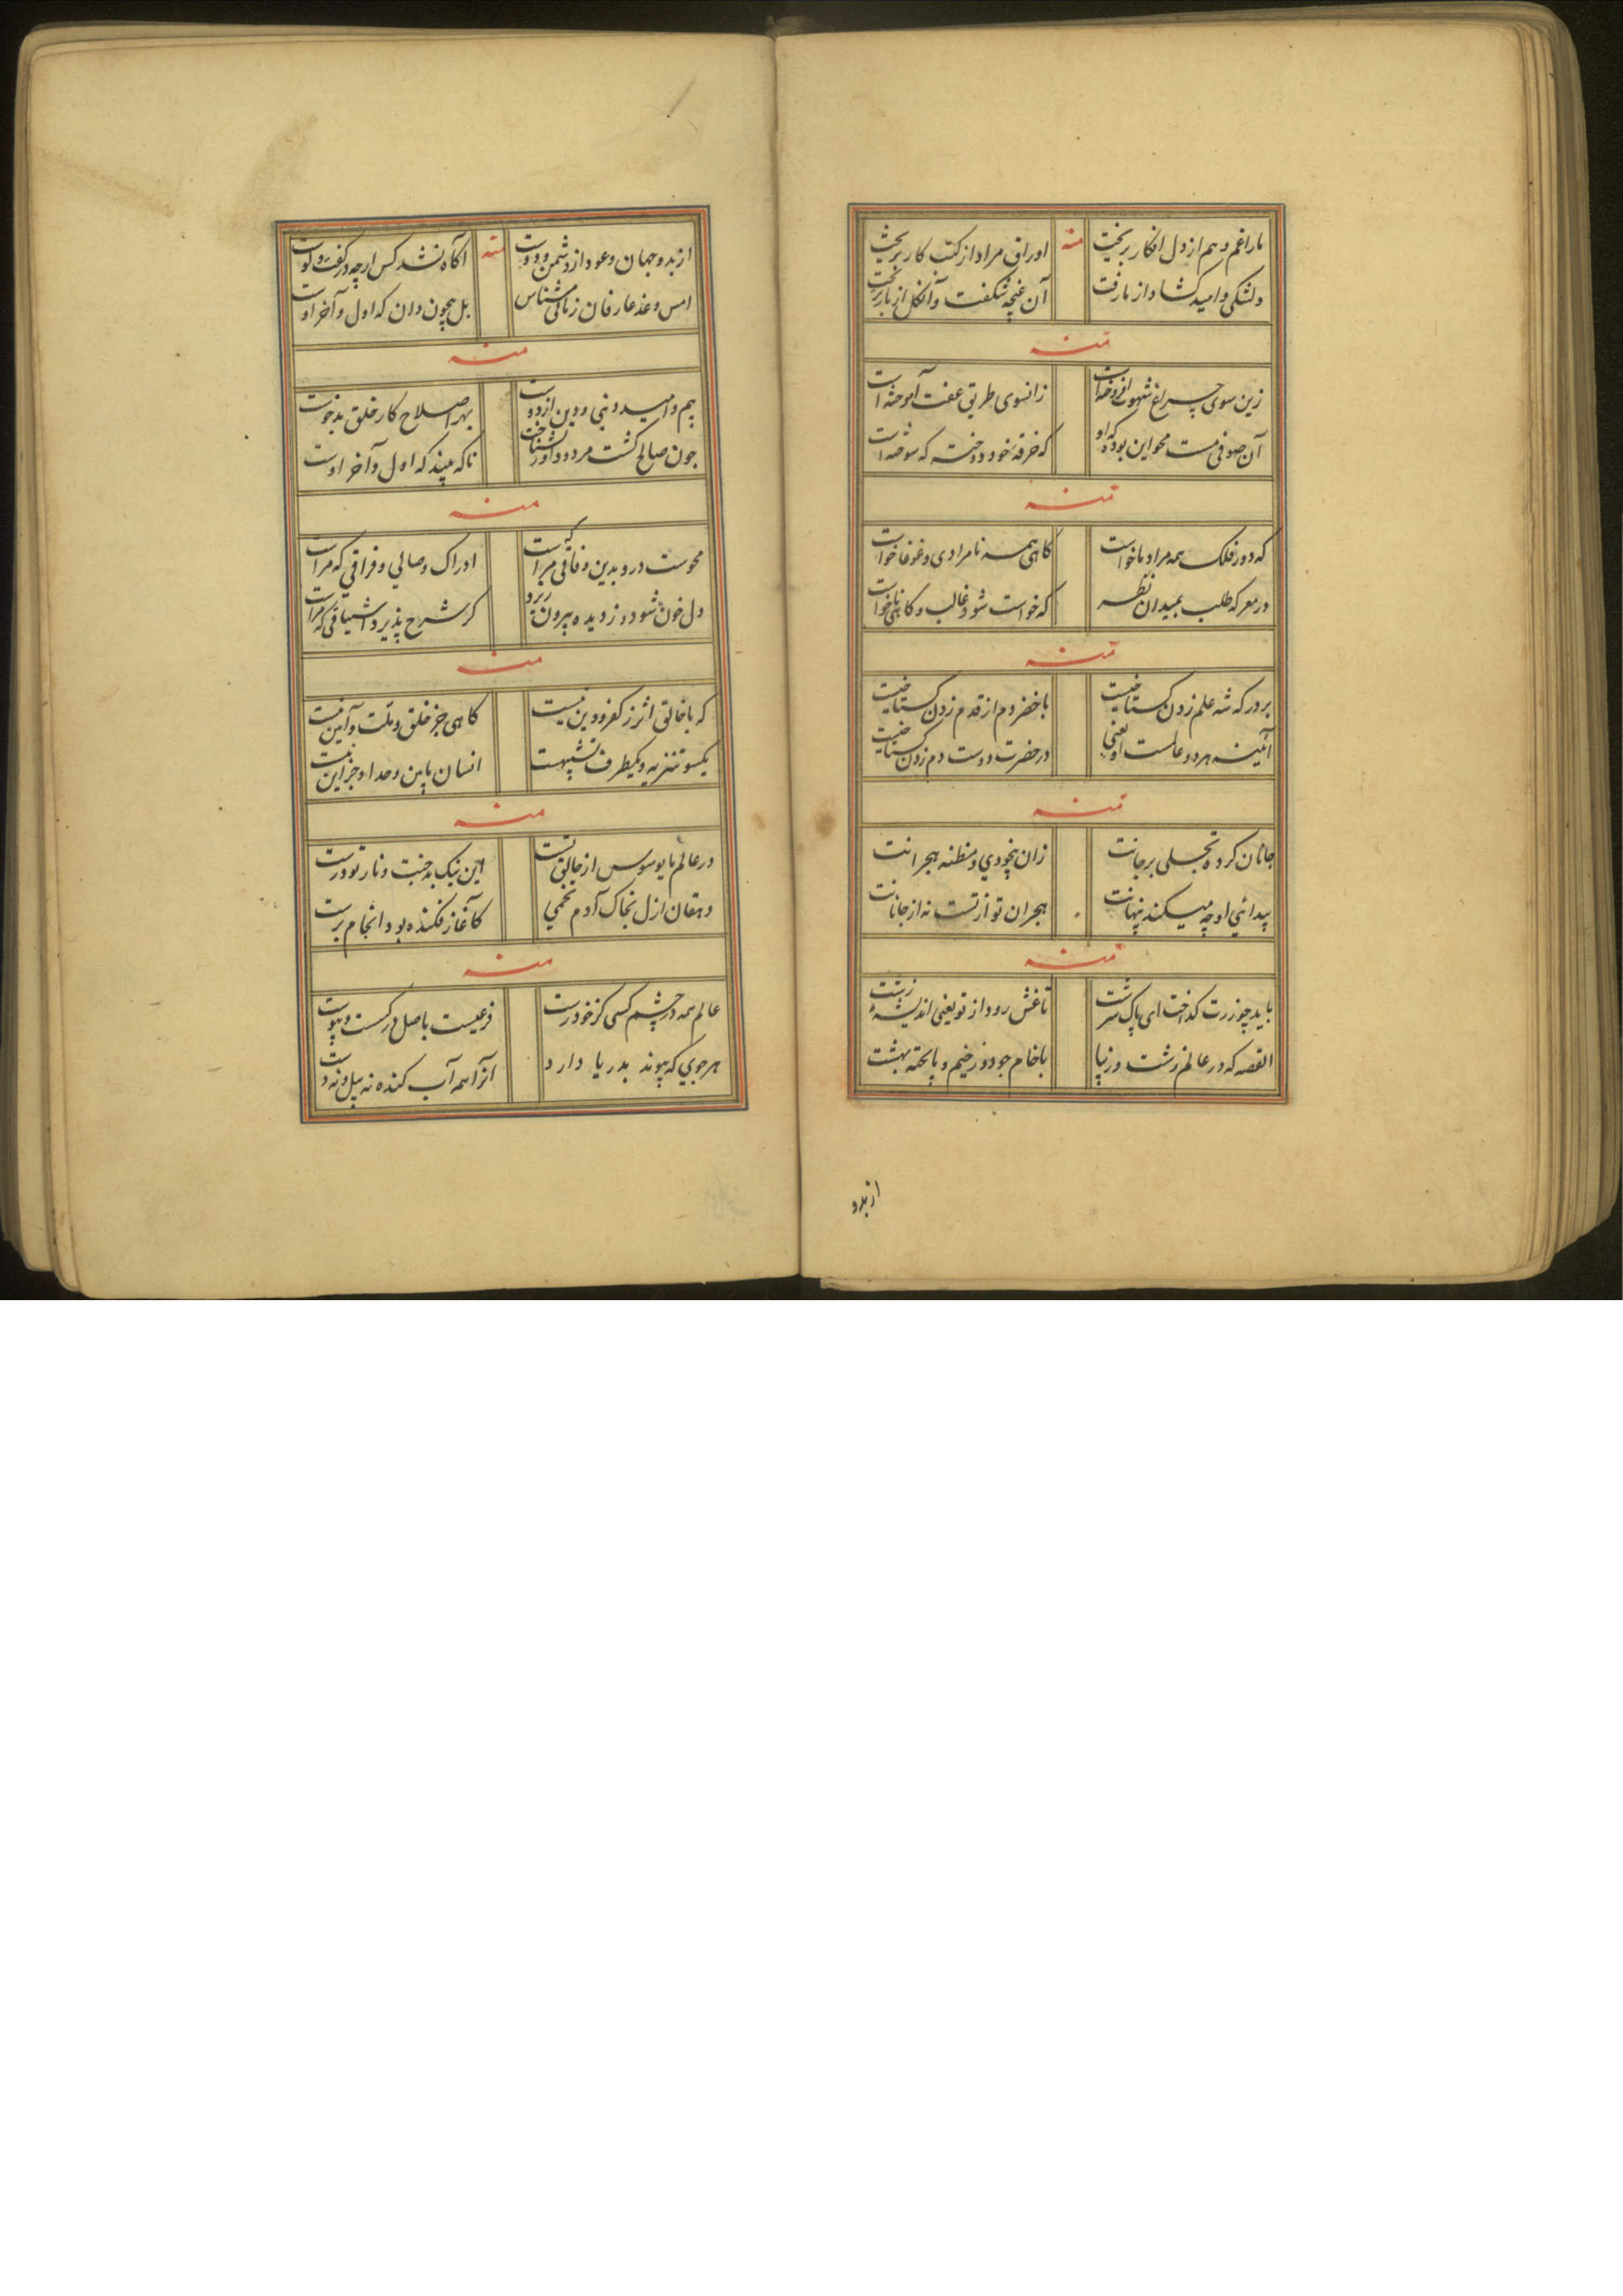 ما را غم و هم از دل افکار بریخت
منه
اوراق مراد از کتب کار بریخت
دلتنگی و امید کشاد از ما رفت
آن غنچه شکفت و آن گل از بار بریخت
منه
زین سوی چراغ شهوت افروخته است
زانسوی طریق عفت آموخته است
آن صوفی مست محو این بود که او
که خرقه خود دوخت که سوخته است
منه
که دور فلک همه مراد ما خواست
کاهی همه نامرادی و غوغا خواست
در معرکه طلب بمیدان نظر
که خواست شود غالب و کاهی ناخواست
منه
بر درکه شه علم زدن کستاخیست
با خضر دم از قدم زدن کستاخیست
آئینه هر دو عالمست او یعنی
در حضرت دوست دم زدن کستاخیست
منه
جانان کرده تجلی بر جانت
زان بیخودی و مظنه هجرانت
پیدائی او چه میکند پنهانت
هجران تو از تست نه از جانانت
منه
باید چو زرت کداخت ای پاک سرشت
تا غش رود از تو یعنی اندیشهٔ زشت
القصه که در عالم زشت و زیبا
با خام چو دوزخیم و با پخته بهشت
از بدو
از بدو جهان و عود از دشمن و دوست
منه
آکاه نشد کس ارچه در کفت و کوست
امس و غد عارفان زمانی مشناس
بل همچون دان که اول و آخر اوست
منه
بیم و امید دنیی و دین از دوست
بهر اصلاح کار خلق بدخوست
چون صالح کشت مرد و داور بشناخت
تا که بیند که اول و آخر اوست
منه
محوست درو بدین وفاقی که مراست
ادراک وصالی و فراقی که مراست
دل خون شود و ز دیده بیرون ریزد
کر شرح پذیرد اشتیاقی که مراست
منه
که با خالق اثر ز کفر و دین نیست
کاهی جز خلق و ملت و آیین نیست
یکسو تنزیه و یکطرف تشبیهست
انسان ما بین وحد او جز این نیست
منه
در عالم مایوسوس از جالق تست
این نیک بد جنت و نار تو درست
دهقان ازل بخاک آدم تخمی
کآغاز فکنده بود انجام برست
منه
عالم همه در چشم کسی کز خود رست
فرعیست با صل در کسست و پیوست
هر جوی که پیوند بدریا دارد
آنرا همه آب کنده نه بیل و نه دست